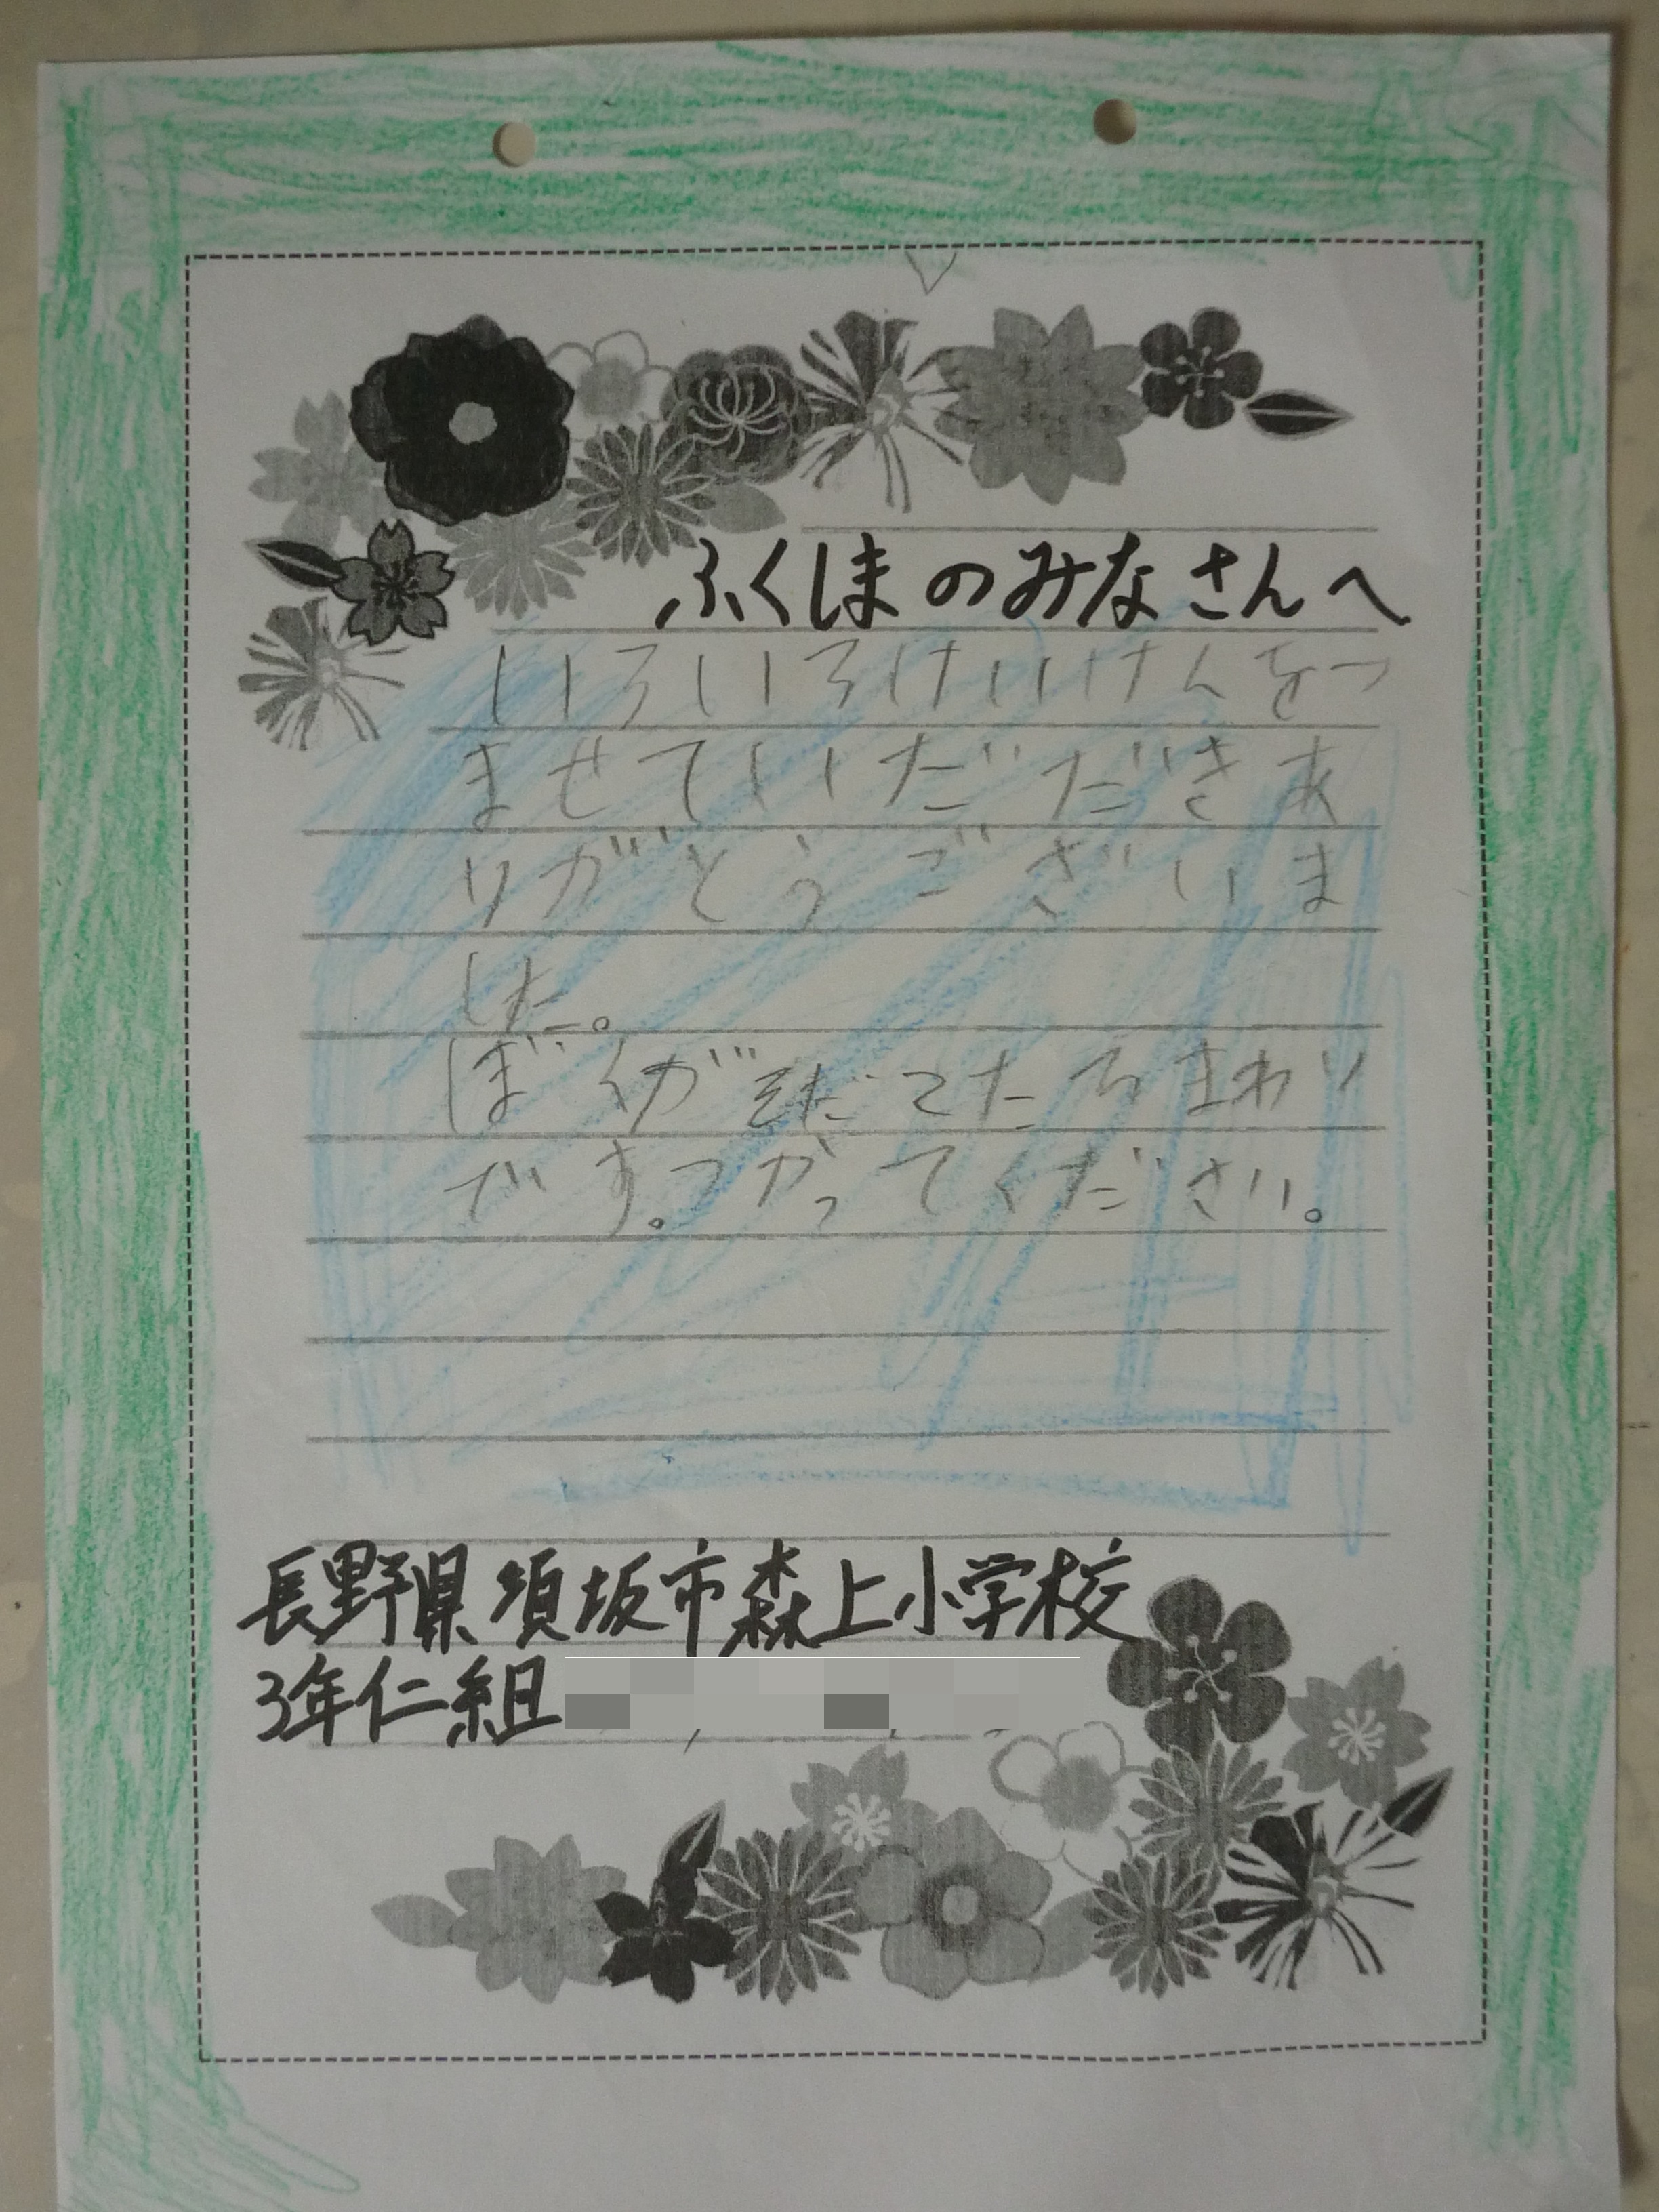 ふくしまのみなさんへ
いろいろけいけんをつ
ませていただだきあ
りがとうございま
した。
ぼくがそだてたひまわり
です。つかってください。
長野県須坂市森上小学校
3年仁組